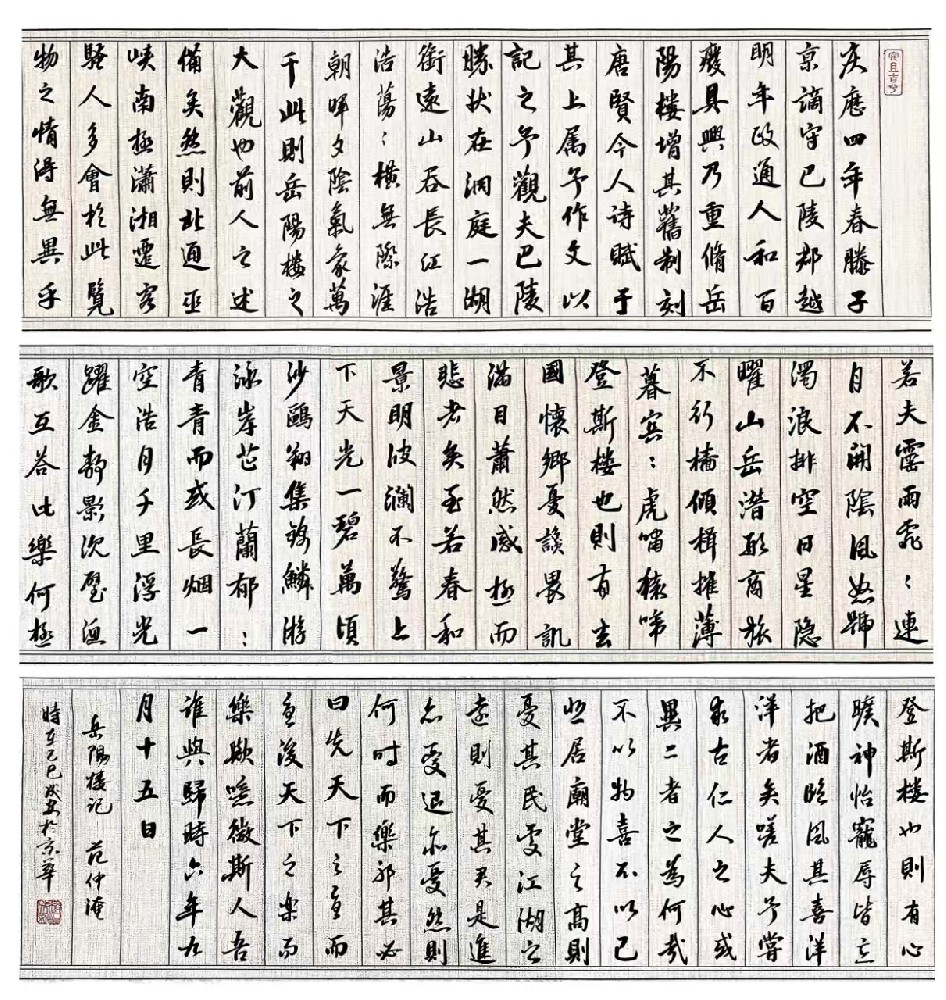 庆歷四年春滕子
京謫守巴陵郡越
明年政通人和百
廢具興乃重脩岳
陽樓增其舊制刻
唐賢今人詩賦于
其上属予作文以
記之予觀夫巴陵
勝狀在洞庭一湖
銜遠山吞長江浩
浩蕩:橫無際涯
朝暉夕陰氣象萬
千此則岳陽樓之
大觀也前人之述
備矣然則北通巫
峽南極瀟湘遷客
騷人多會於此覽
物之情得無異乎
若夫霪雨霏:連
月不開陰風怒號
濁浪排空日星隐
曜山岳潛形商旅
不行檣傾楫摧薄
暮冥:虎嘯猿啼
登斯樓也則有去
國懷鄉憂讒畏譏
滿目蕭然感極而
悲者矣至若春和
景明波瀾不驚上
下天光一碧萬頃
沙鷗翔集錦鱗游
泳岸芷汀蘭郁:
青青而或長烟一
空浩月千里浮光
躍金靜影沉璧漁
歌互答此樂何極
登斯樓也則有心
曠神怡寵辱皆忘
把酒臨風其喜洋
洋者矣嗟夫予嘗
求古仁人之心或
異二者之為何哉
不以物喜不以己
悲居廟堂之高則
憂其民處江湖之
遠則憂其君是進
亦憂退亦憂然則
何時而樂耶其必
曰先天下之憂而
憂後天下之樂而
樂歟噫微斯人吾
誰與歸時六年九
月十五日
岳陽樓記 范仲淹
時在己巳 於京華